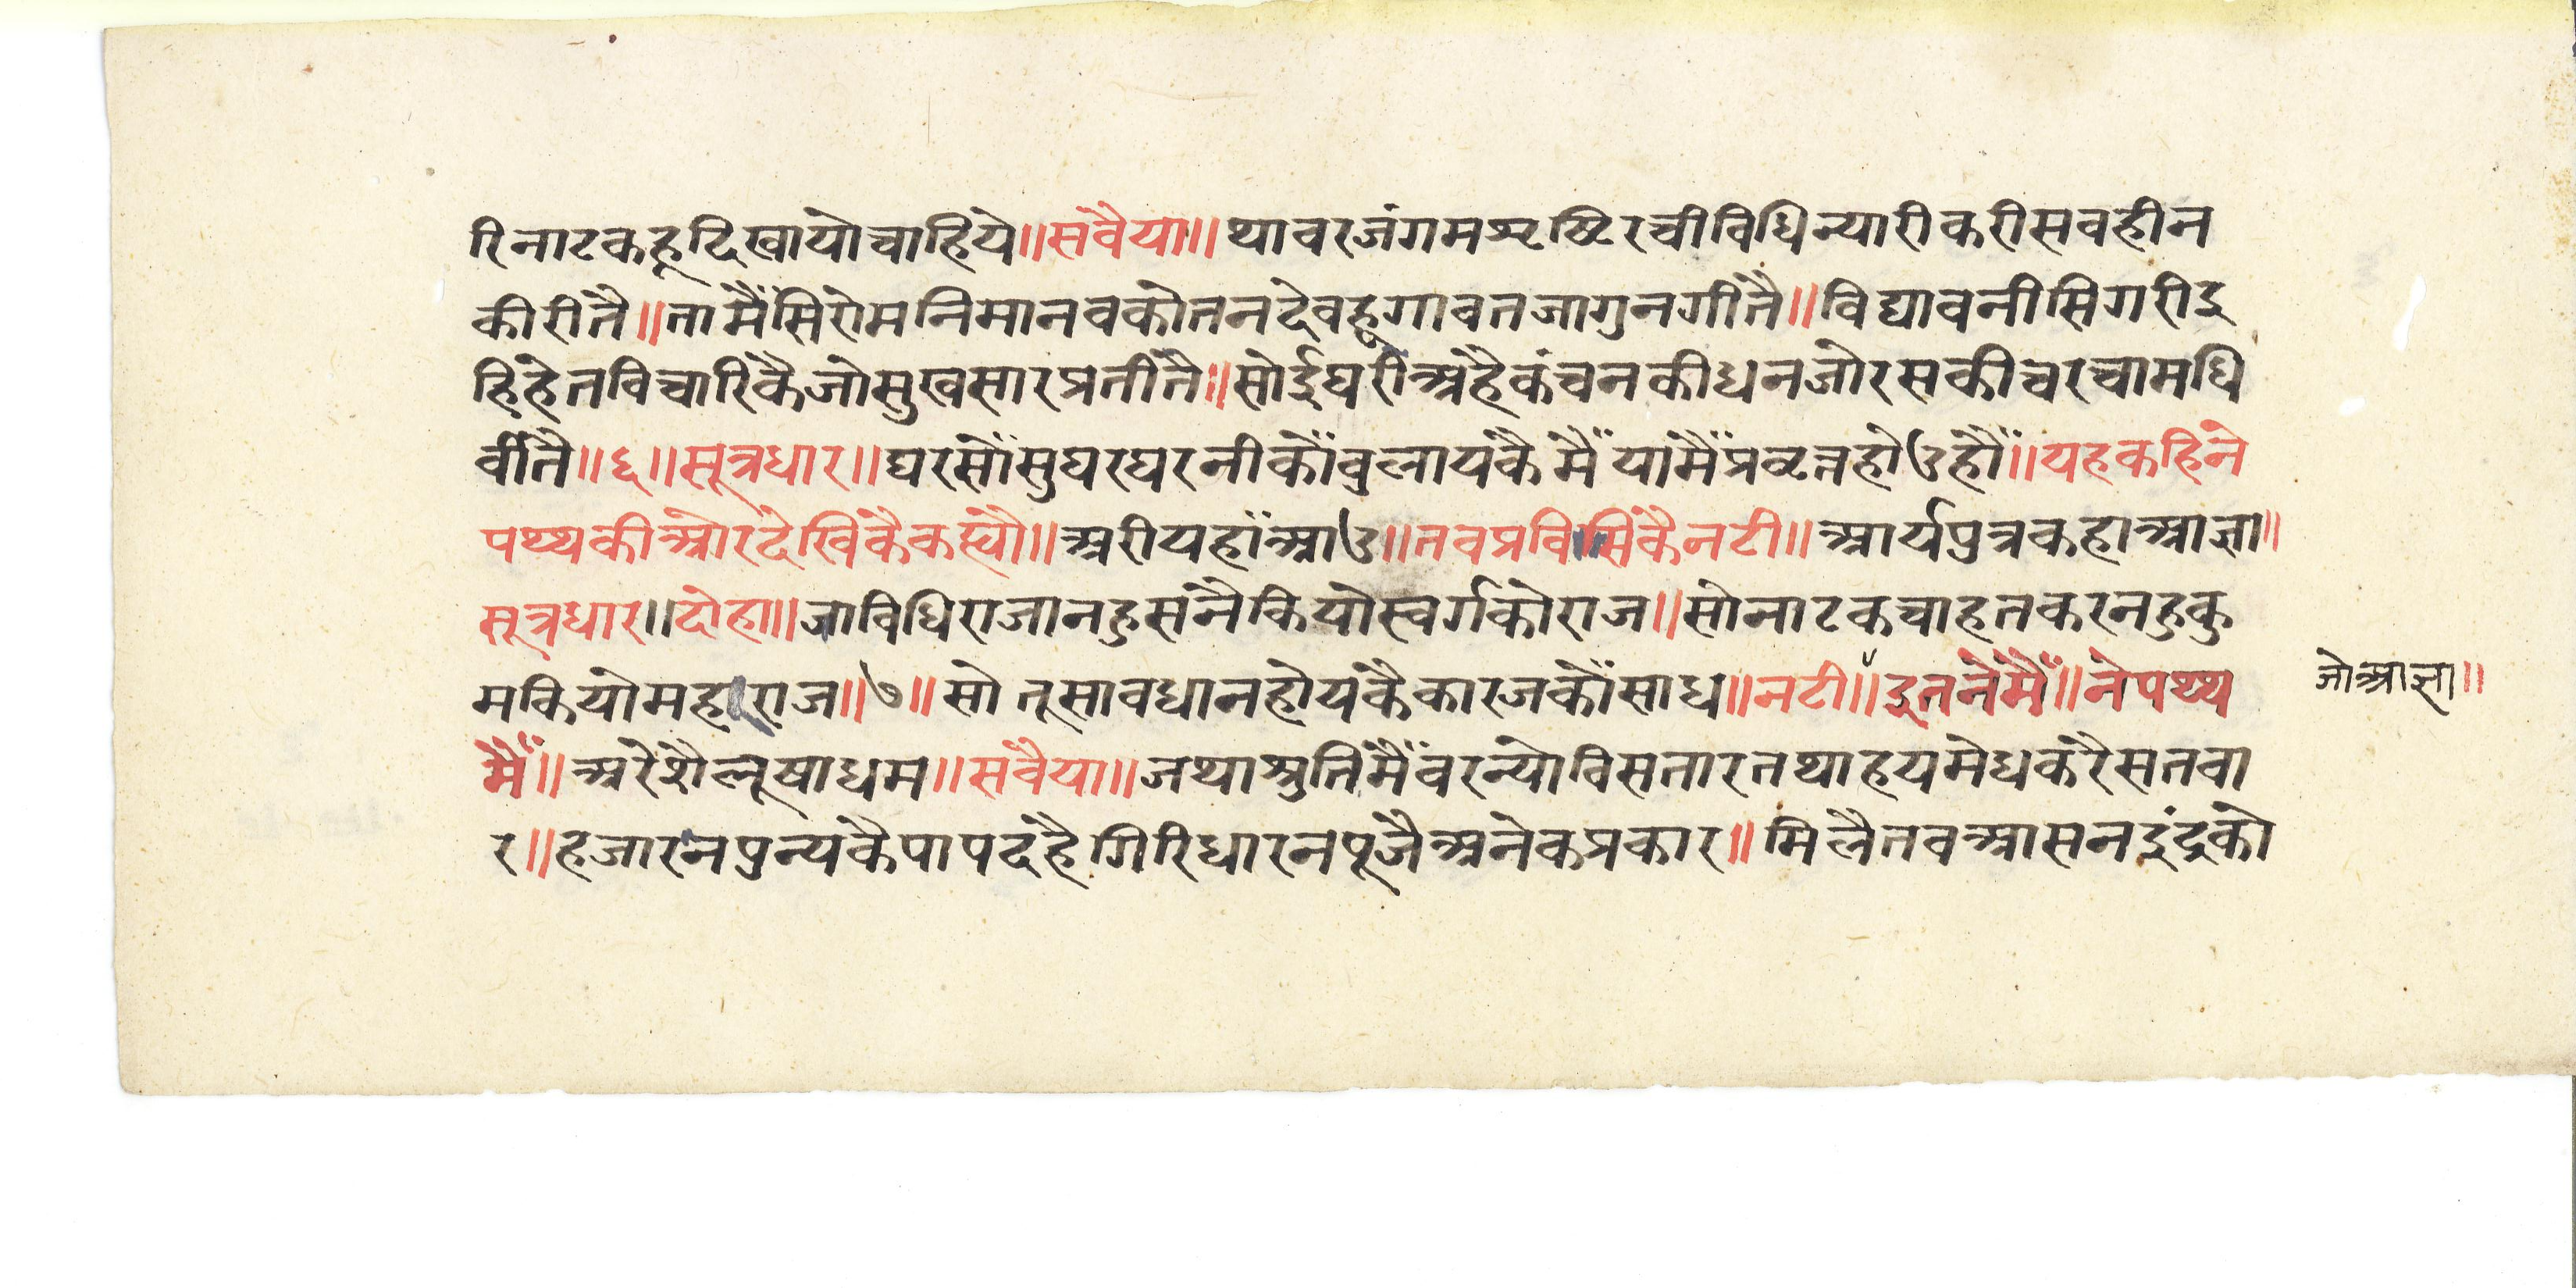 रिनाटकहूदिखायोचाहिये॥सवैया॥थावरजंगमसृष्टिरचीविधिन्यारीकरीसवहीन
कीरीतै॥तामैंसिरोमनिमानवकोतनदेवहूगावतजागुनगीतै॥विद्यावनीसिगरीइ
हिहेतविचारिकैजोसुखसारप्रतीतै॥सोईघरीअहैकंचनकीधनजोरसकीचरचामधि
वीतै॥६॥सूत्रधार॥घरसौंसुघरघरनीकौंवुलायकैमैंयामैंप्रवृत्तहोउहौं॥यहकहिने
पथ्यकीओरदेखिकैकह्यौ॥अरीयहांआउ॥तवप्रविसिकैनटी॥आर्यपुत्रकहाआज्ञा॥
सूत्रधार॥दोहा॥जाविधिराजानहुसनैकियोस्वर्गकोराज॥सोनाटकचाहतकरनहुकु
मकियोमहाराज॥७॥सोतूसावधानहोयकैकारजकौंसाध॥नटी॥इतनेमैं॥नेपथ्य
मैं॥अरेशैलूषाधम॥सवैया॥जथाश्रुतिमैंवरन्योविसतारतथाहयमेधकरैसतवा
र॥हजारनपुन्यकैपापदहैगिरिधारनपूजैअनेकप्रकार॥मिलैतवआसनइंद्रको
जोआज्ञा॥